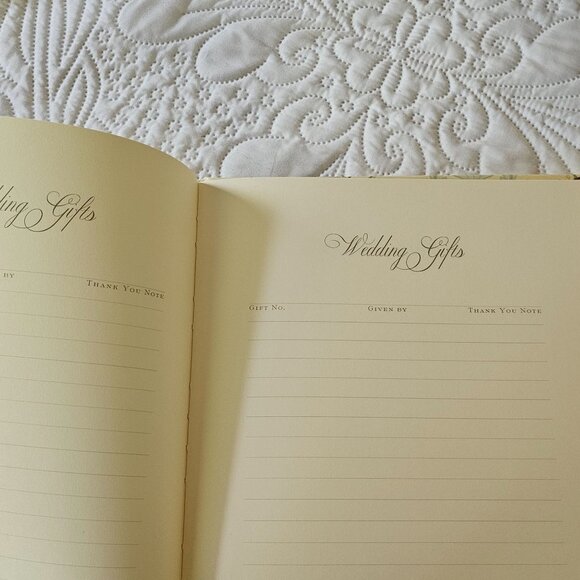 Gifts
BY
THANK YOU NOTE
Wedding Gifts
GIFT NO. GIVEN BY THANK YOU NOTE